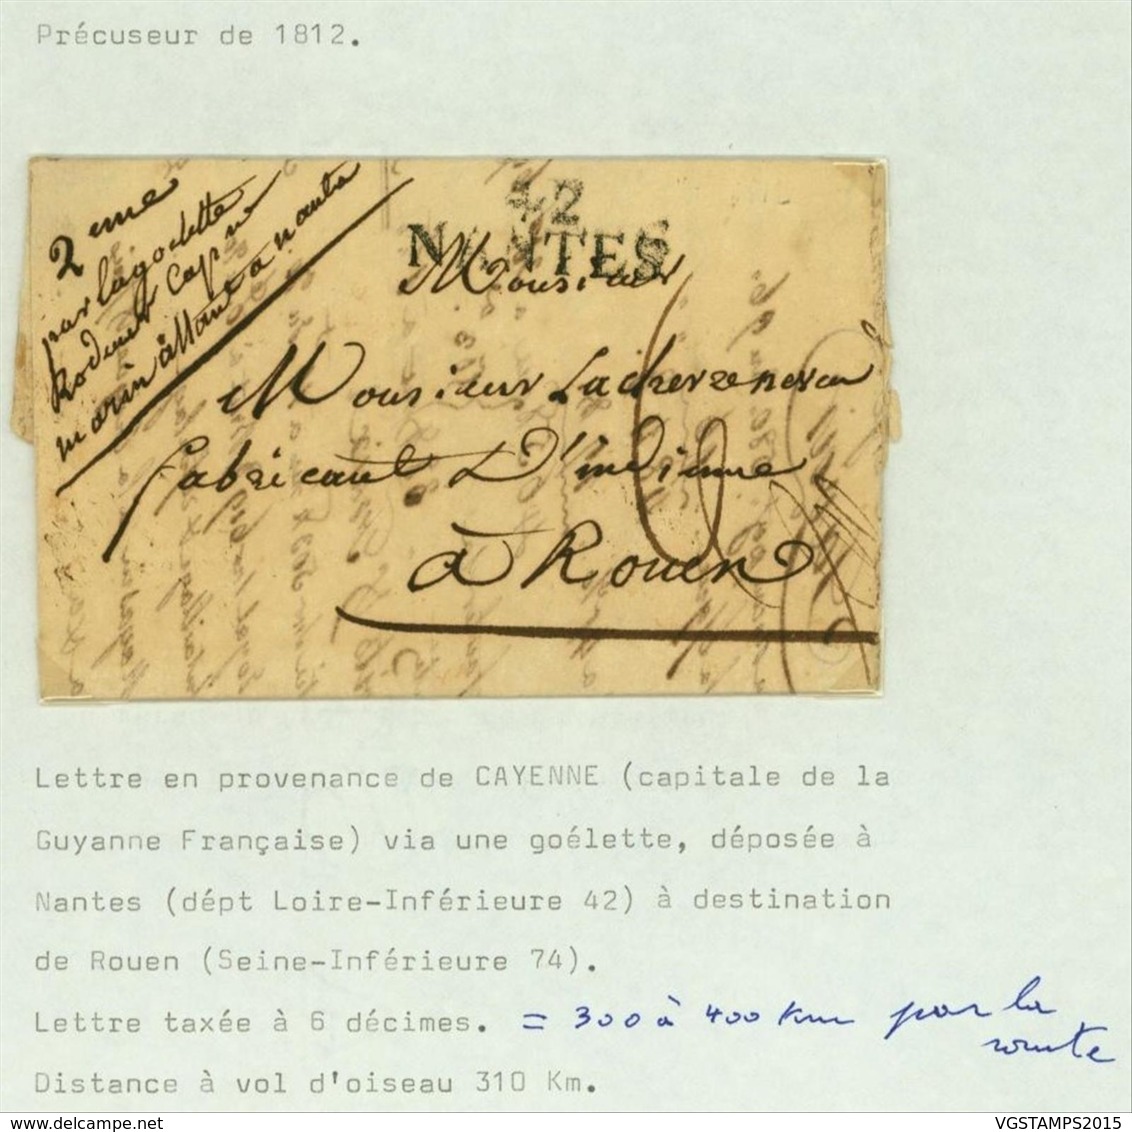 Précuseur de 1812.
2eme
par lagoelette
Rodeur Cap ne
marin allant a nante
42
NANTES
Monsieur
Monsieur
fabricant D'indienne
à Rouen
6
Lettre en provenance de CAYENNE (capitale de la
Guyanne Française) via une goélette, déposée à
Nantes (dépt Loire-Inférieure 42) à destination
de Rouen (Seine-Inférieure 74).
Lettre taxée à 6 décimes. = 300 à 400 Km par la
route
Distance à vol d'oiseau 310 Km.
delcampe.net
VGSTAMPS2015